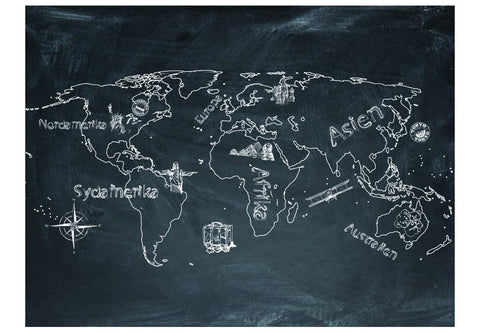 Nordamerika
Europa
Asien
Sydamerika
Afrika
Australien